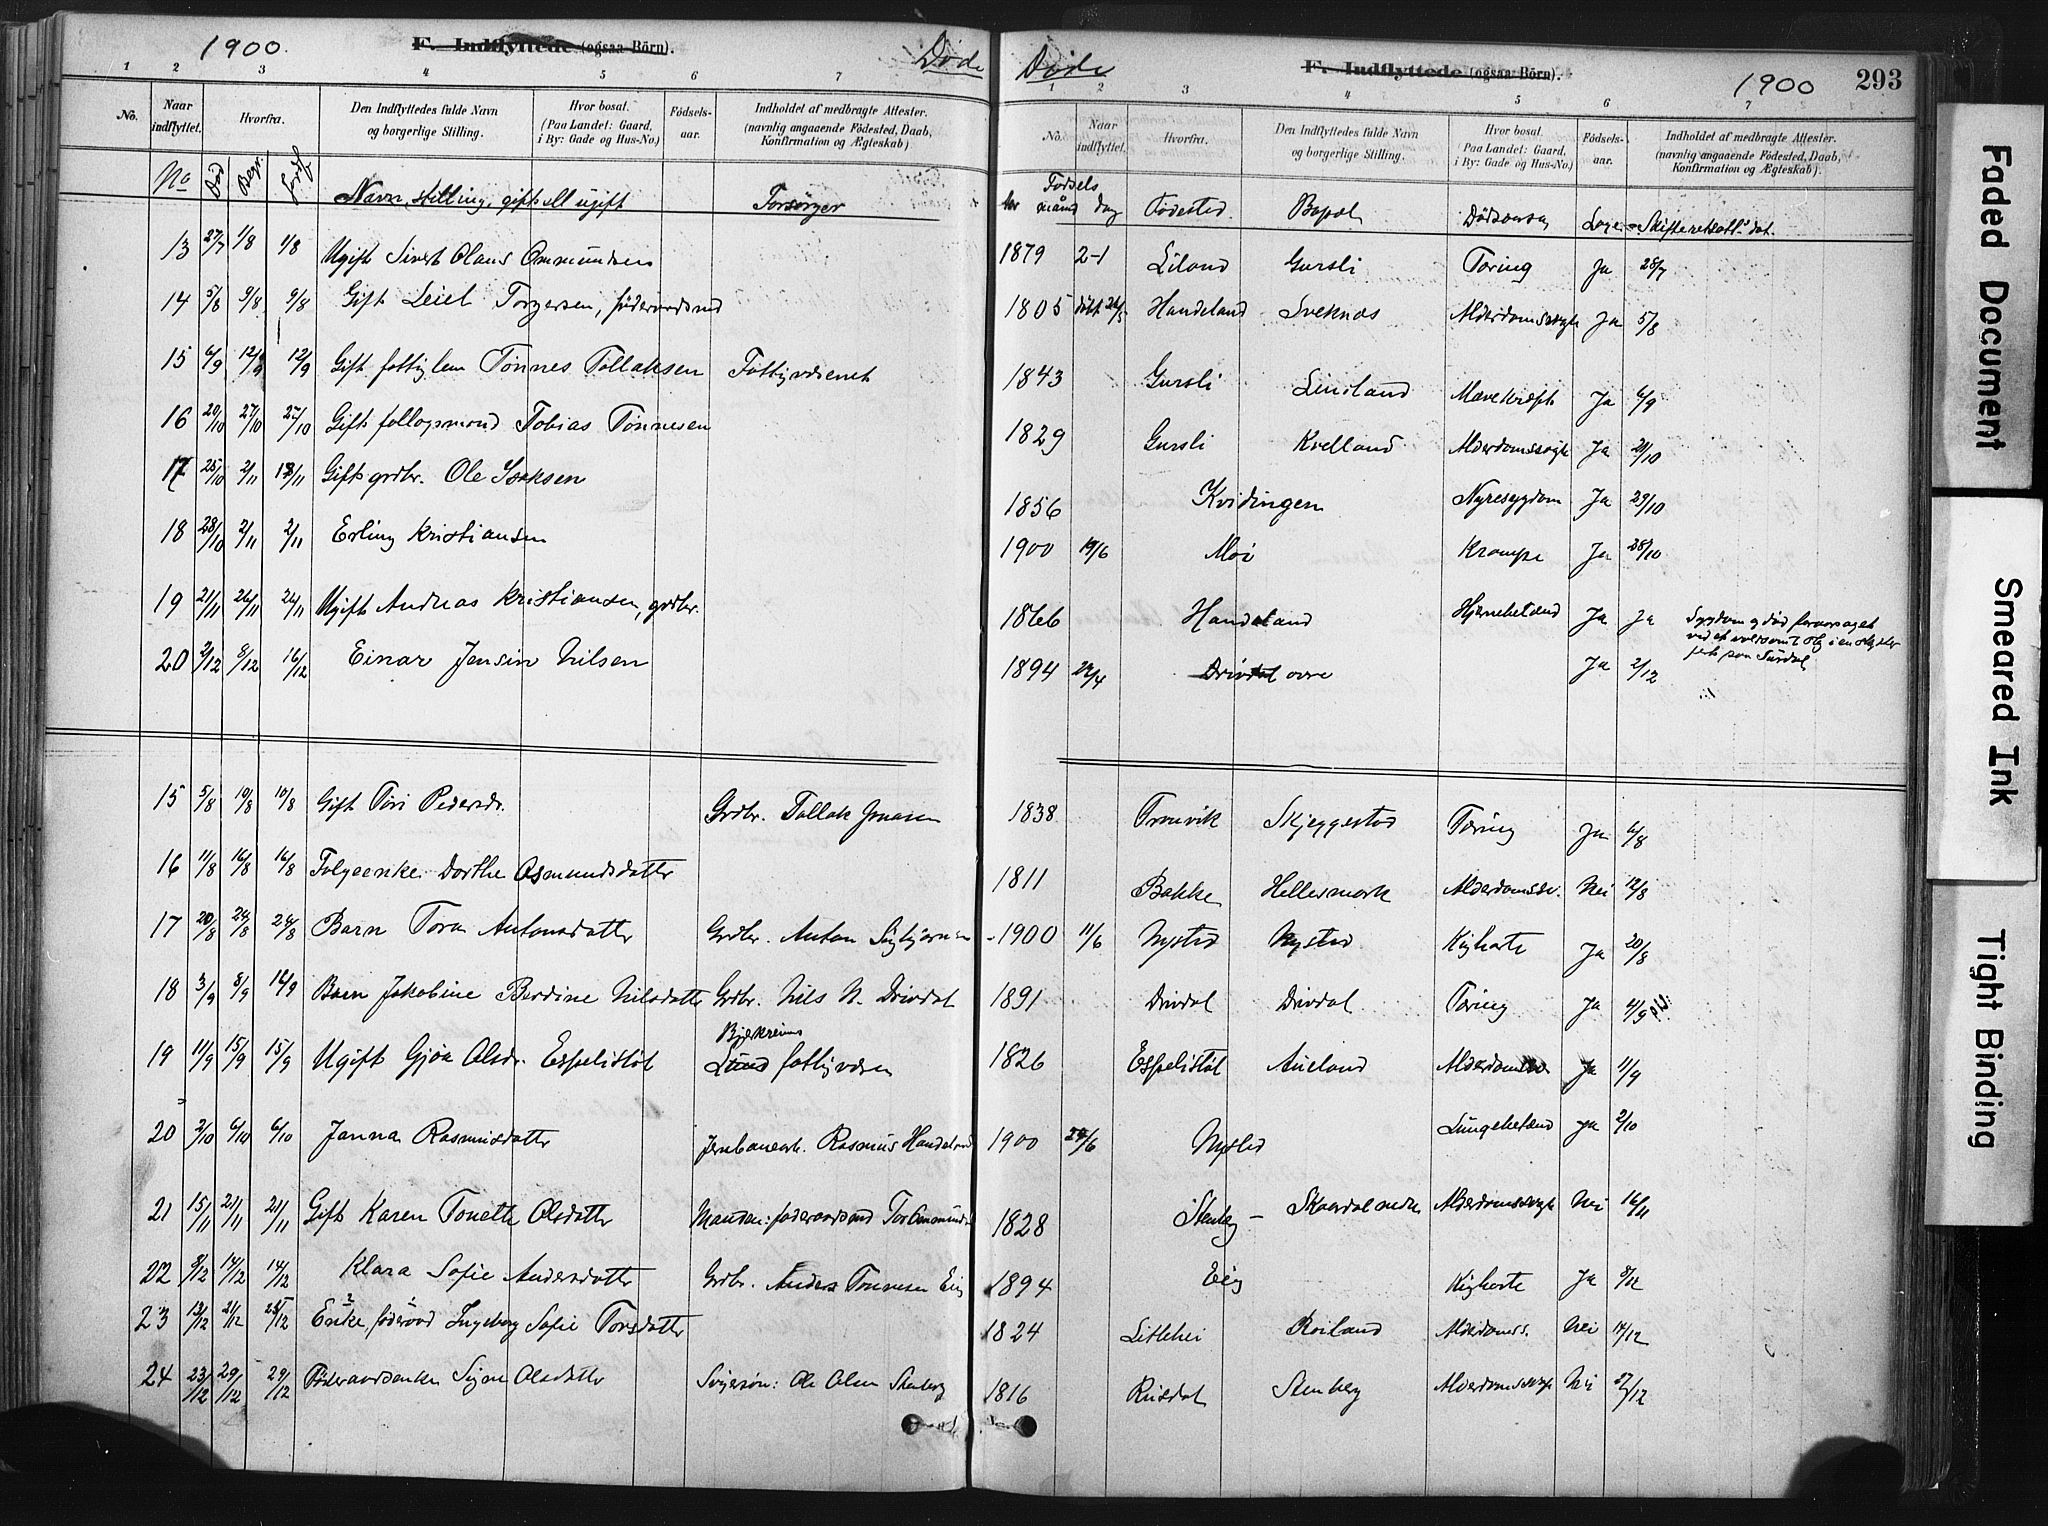 1900. F. Indflyttede (ogsaa Börn). Døde
1 2 3 4 5 6 7
No. Naar indflyttet. Hvorfra. Den Indflyttedes fulde Navn og borgerlige Stilling. Hvor bosat. (Paa Landet: Gaard, i By: Gade og Hus-No.) Fødsels-aar. Indholdet af medbragte Attester. (navnlig angaaende Fødested, Daab, Konfirmation og Ægteskab)
No Død Begr. Jordf Navn, stilling, gift ell ugift Forsørger
13 27/7 1/8 1/8 Ugift Sivert Olaus Ommundsen
14 5/8 9/8 9/8 Gift Leiel Torgersen, føderaadsmd
15 6/9 12/9 12/9 Gift fattiglem Tønnes Tollaksen Fattigvæsenet
16 20/10 27/10 27/10 Gift Tobias Tønnesen
17 25/10 2/11 Gift grdbr. Ole Isaksen
18 28/10 2/11 2/11 Erling Kristiansen
19 21/11 26/11 26/11 Ugift Andreas Kristiansen, grdbr.
20 2/12 8/12 16/12 Einar Jensin Nilsen
15 5/8 10/8 10/8 Gift Tori Pedersdr. Grdbr. Tollak Jonasen
16 11/8 16/8 16/8 Dorthe Osmundsdatter
17 20/8 24/8 24/8 Barn Tora Antonsdatter Grdbr. Anton Sigbjørnsen
18 3/9 8/9 14/9 Barn Jakobine Berdine Nilsdatter Grdbr. Nils N. Drivdal
19 11/9 15/9 15/9 Ugift Gjøa Olsdr. Espelistøl Bjerkreims Lund fattigvæsen
20 2/10 6/10 6/10 Janna Rasmusdatter Jernbanearb. Rasmus Handeland
21 15/11 21/11 21/11 Gift Karen Tonette Olsdatter Manden: føderaadsmd Tor Ommunds
22 8/12 14/12 14/12 Klara Sofie Andersdatter Grdbr. Anders Tønnesen Eig
23 13/12 21/12 Enke, føderaad Ingeborg Sofie Torsdatter
24 23/12 29/12 29/12 Føderaadsenke Signe Olsdatter Svigersøn: Ole Olsen Stenberg
Døde F. Indflyttede (ogsaa Börn). 1900 293
1 2 3 4 5 6 7
No. Naar indflyttet. Hvorfra. Den Indflyttedes fulde Navn og borgerlige Stilling. Hvor bosat. (Paa Landet: Gaard, i By: Gade og Hus-No.) Fødsels-aar. Indholdet af medbragte Attester. (navnlig angaaende Fødested, Daab, Konfirmation og Ægteskab).
Fødsels
aar maaned dag Fødested Bopæl Dødsaarsag Læge Skifteretsatt. dat.
1879 2-1 Liland Gursli Tæring Ja 28/7
1805 døbt 26/5 Handeland Sveknæs Alderdomssvagh Ja 5/8
1843 Gursli Linsland Mavekræft Ja 6/9
1829 Gursli Kvelland Alderdomssvagh Ja 20/10
1856 Kvidingen Nyresygdom Ja 29/10
1900 19/6 Moi Krampe Ja 28/10
1866 Handeland Hjernebetænd Ja Ja Sygdom og død foraarsaget
1894 22/4 Drivdal øvre Ja 2/12
1838 Tronvik Skjeggestad Tæring Ja 6/8
1811 Bakke Hellersmork Alderdomssv. Nei 12/8
1900 11/6 Nysted Nysted Kighoste Ja 20/8
1891 Drivdal Drivdal Tæring Ja 4/9
1826 Espelistøl Aueland Ja 11/9
1900 24/6 Nysted Lungebetænd Ja 2/10
1828 Stenberg – Skaardal nedre Alderdomssvagh Nei 16/11
1894 Eig Kighoste Ja 8/12
1824 Litlehei Roiland Alderdomss. Nei 14/12
1816 Rusdal Stenberg Alderdomssvagh Nei 27/12
Faded Document
Smeared Ink
Tight Binding